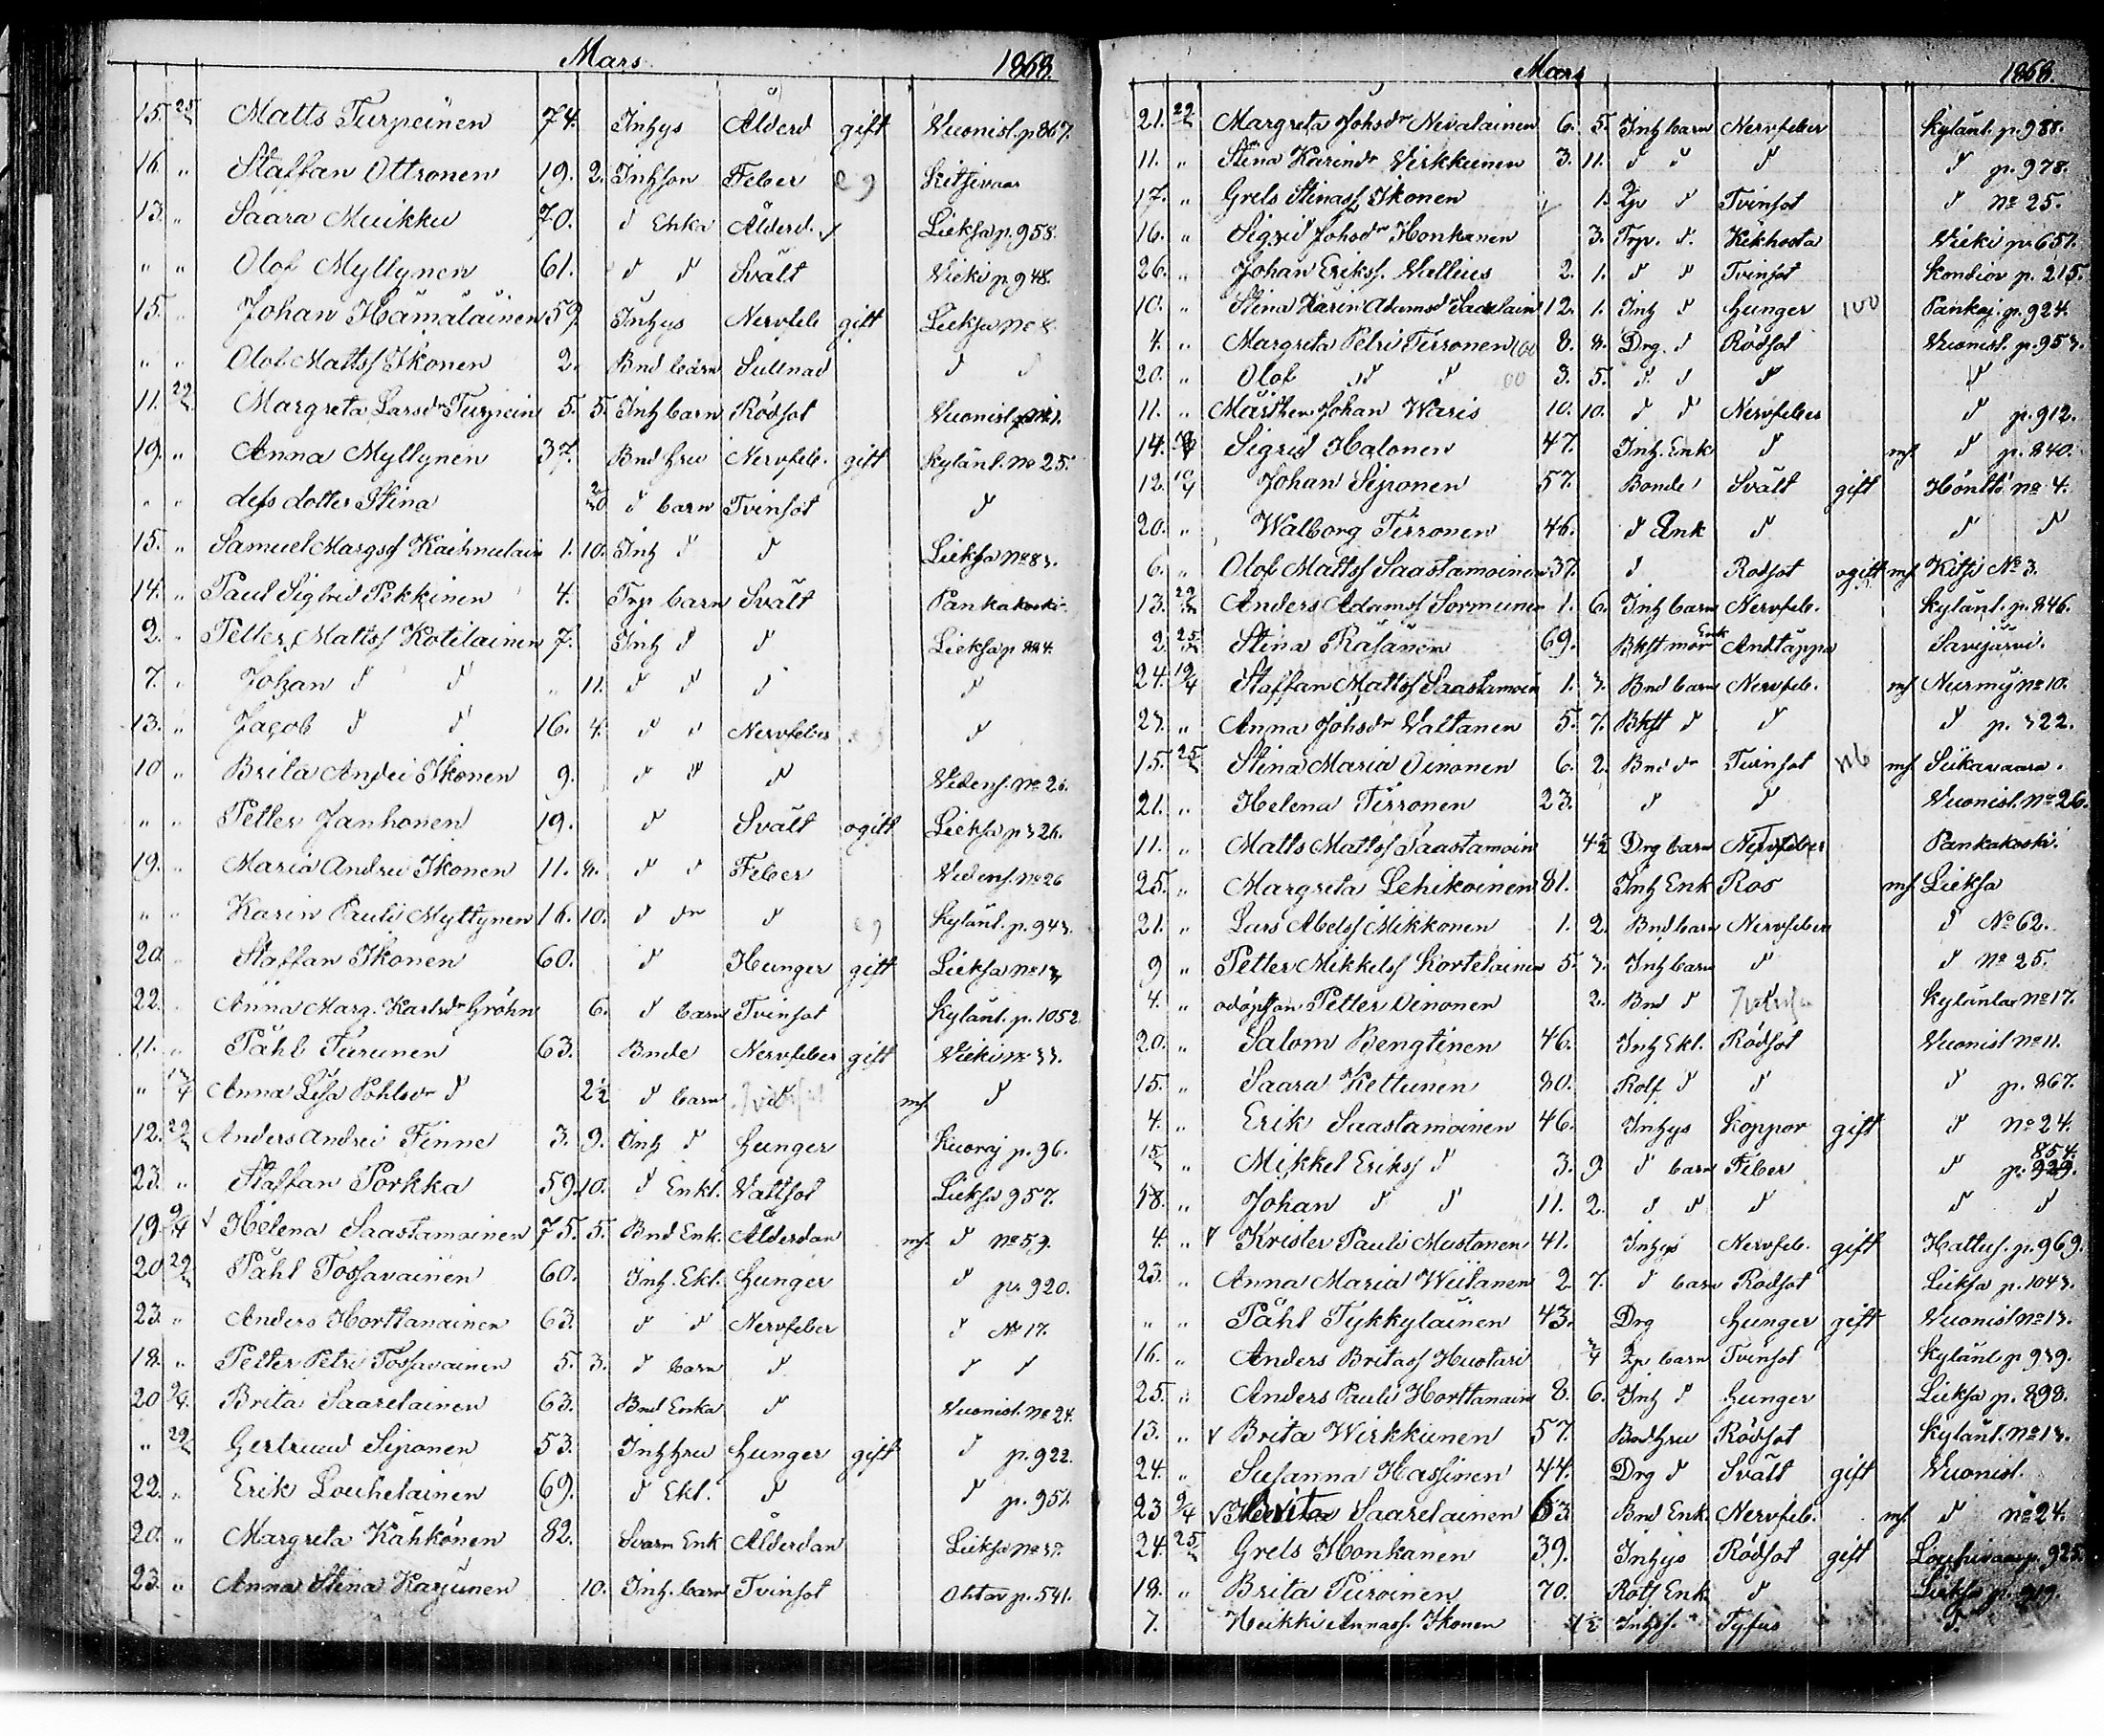 Mars 1868.
15. 25 Matts Turpeinen 74. Inhys Ålderd gift Vuonisl. p. 867.
16. " Staffan Ottronen 19. 2. Inhson Feber Kitsivaar
13. " Saara Muikku 70. d Enka Ålderd. Lieksa p. 958.
" " Olof Myllynen 61. d d Svält Vieki p. 948.
15. " Johan Hämäläinen 59 Inhys Nervfeb gift Lieksa No 8.
" " Olof Mattss Ikonen 2. Bnd barn Sullnad d d
11. 22 Margreta Larsdr Turpein 5. 5. Inh barn Rödsot Vuonisl.
19. " Anna Myllynen 37. Bnd hru Nervfeb. gift Kylänl. No 25.
" " dess dotter Stina d barn Tvinsot d
15. " Samuel Margss Kaihnulain 1. 10. Inh d d Lieksa No 83.
14. " Paul Sigfrid Pekkinen 4. Trp barn Svält Pankakoski.
2. " Petter Mattss Kotilainen 7. Inh d d Lieksa p. 884.
7. " Johan d d " 11. d d d d
13. " Jacob d d 16. 4. d d Nervfeber d
10 " Brita Andrei Ikonen 9. d d d Videns. No 26.
" " Petter Janhonen 19. d Svält ogift Lieksa p. 326.
19. " Maria Andrei Ikonen 11. 8. d d Feber Videns. No 26
" " Karin Pauli Myllynen 16. 10. d dr d Kylänl. p. 943.
20 " Staffan Ikonen 60. d Hunger gift Lieksa No 13
22. " Anna Marg. Karlsdr Gröhn 6. d barn Tvinsot Kylänl. p. 1052.
11. " Påhl Turunen 63. Bnde Nervfeber gift Vieki No 33.
" Anna Lisa Pohlsdr d 2½ d barn ms. d
12. 29 Anders Andrei Finne 3. 9. Inh d Hunger Kuoraj p. 96.
23. " Staffan Porkka 59. 10. d Enkl. Vattsot Lieksa 957.
19. 9/4 √ Helena Saastamoinen 75. 5. Bnd Enk. Ålderdom ms. d No 59.
20 29 Påhl Tossavainen 60. Inh. Ekl. Hunger d p. 920.
23. " Anders Horttanainen 63. d d Nervfeber d No 17.
18. " Petter Petri Tossavainen 5. 3. d barn d d d
20 9/4. Brita Saarelainen 63. Bnd Enka d Vuonisl. No 24.
" 29 Gertruud Siponen 53. Inh hru Hunger gift d p. 922.
22. " Erik Louhelainen 69. d Ekl. d d p. 951.
20. " Margreta Kähkönen 82. Svarm Enk Ålderdom Lieksa No 37.
23. " Anna Stina Karjunen 10. Inh. barn Tvinsot Ohtav p. 541.
Mars 1868.
21. 22 Margreta Johsdr Nevalainen 6. 5. Inh barn Nervfeber Kylänl. p. 988.
11. " Stina Karindr Virkkunen 3. 11. d d d d p. 978.
17. " Grels Stinass Ikonen 1. Lp d Tvinsot d No 25.
16. " Sigrid Johsdr Honkanen 3. Trp. d. Kikhosta Vieki p. 657.
26. " Johan Erikss. Wallius 2. 1. d d Tvinsot Kondiov p. 215.
10. " Stina Karin Adamsdr Saarelain 12. 1. Inh d Hunger 100 Pankaj. p. 924.
4. " Margreta Petri Tirronen 8. 8. Drg. d Rödsot Vuonisl. p. 953.
20. " Olof d d 3. 5. d. d d d
11. " Mårthen Johan Waris 10. 10. d d Nervfeber d p. 912.
14. Sigrid Halonen 47. Inh. Enk d ms. d p. 840.
12. Johan Siponen 57. Bonde Svält gift Höntto No 4.
20. " Walborg Tirronen 46. d Enk d d d
6. " Olof Mattss Saastamoinen 37. d Rodsot ogift ms. Kitsi No 3.
13. 22 Anders Adamss Sormunen 1. 6. Inh barn Nervfeb. Kylänl. p. 846.
2 25 Stina Räsänen 69. Bkst mor Enk Andtäppa Savijärvi.
24. 19/4 Staffan Mattss Saastamoin 1. 3. Bnd barn Nervfeb. ms. Nurmij No 10.
23. " Anna Johsdr Waltanen 5. 7. Bkst d d d p. 322.
15. 25 Stina Maria Oinonen 6. 2. Bnd dr Tvinsot ms. Siikavaara.
21. " Helena Tirronen 23. d d Vuonisl. No 26.
11. " Matts Mattss Saastamoin 4½ Drg barn Nervfeber Pankakoski.
25. " Margreta Lehikoinen 81. Inh Enk Ros ms. Lieksa
21. " Lars Abelss Mikkonen 1. 2. Bnd barn Nervfeber d No 62.
9 " Petter Mikkelss Kortelainen 5. 3. Inh barn d d No 25.
4. " odöpt son Petter Oinonen 2. Bnd d Kylänlax No 17.
20. " Salom Bengtinen 46. Inh Ekl. Rödsot Vuonisl No 11.
15. " Saara Kettunen 80. Rolf. d d d p. 867.
4. " Erik Saastamoinen 46. Inhys Koppor gift d No 24.
15 " Mikkel Erikss d 3. 9. d barn Feber d p. 929. 854.
18. " Johan d d 11. 2. d d d d d
4. " √ Krister Pauli Mustonen 41. Inhys Nervfeb. gift Hattus. p. 969.
23. " Anna Maria Wiitanen 2. 7. d barn Rodsot Lieksa p. 1043.
" " Påhl Tykkyläinen 43. Drg Hunger gift Vuonisl No 13.
16. " Anders Britass Huotari Lp barn Tvinsot Kylänl p. 939.
25. " Anders Pauli Horttanain 8. 6. Inh d Hunger Lieksa p. 898.
13. " √ Brita Wirkkunen 57. Bnd hru Rödsot Kylänl. No 13.
24. " Susanna Hassinen 44. Drg d Svält gift Vuonisl.
23 9/4 √ Brita Saarelainen 63. Bnd Enk. Nervfeb. ms. d No 24.
24. 25 Grels Honkanen 39. Inhys Rödsot gift p. 925.
18. " Brita Piiroinen 70. Rotf Enk d Lieksa p. 919.
7. Heikki Annass. Ikonen Inhss. Tyfus d.